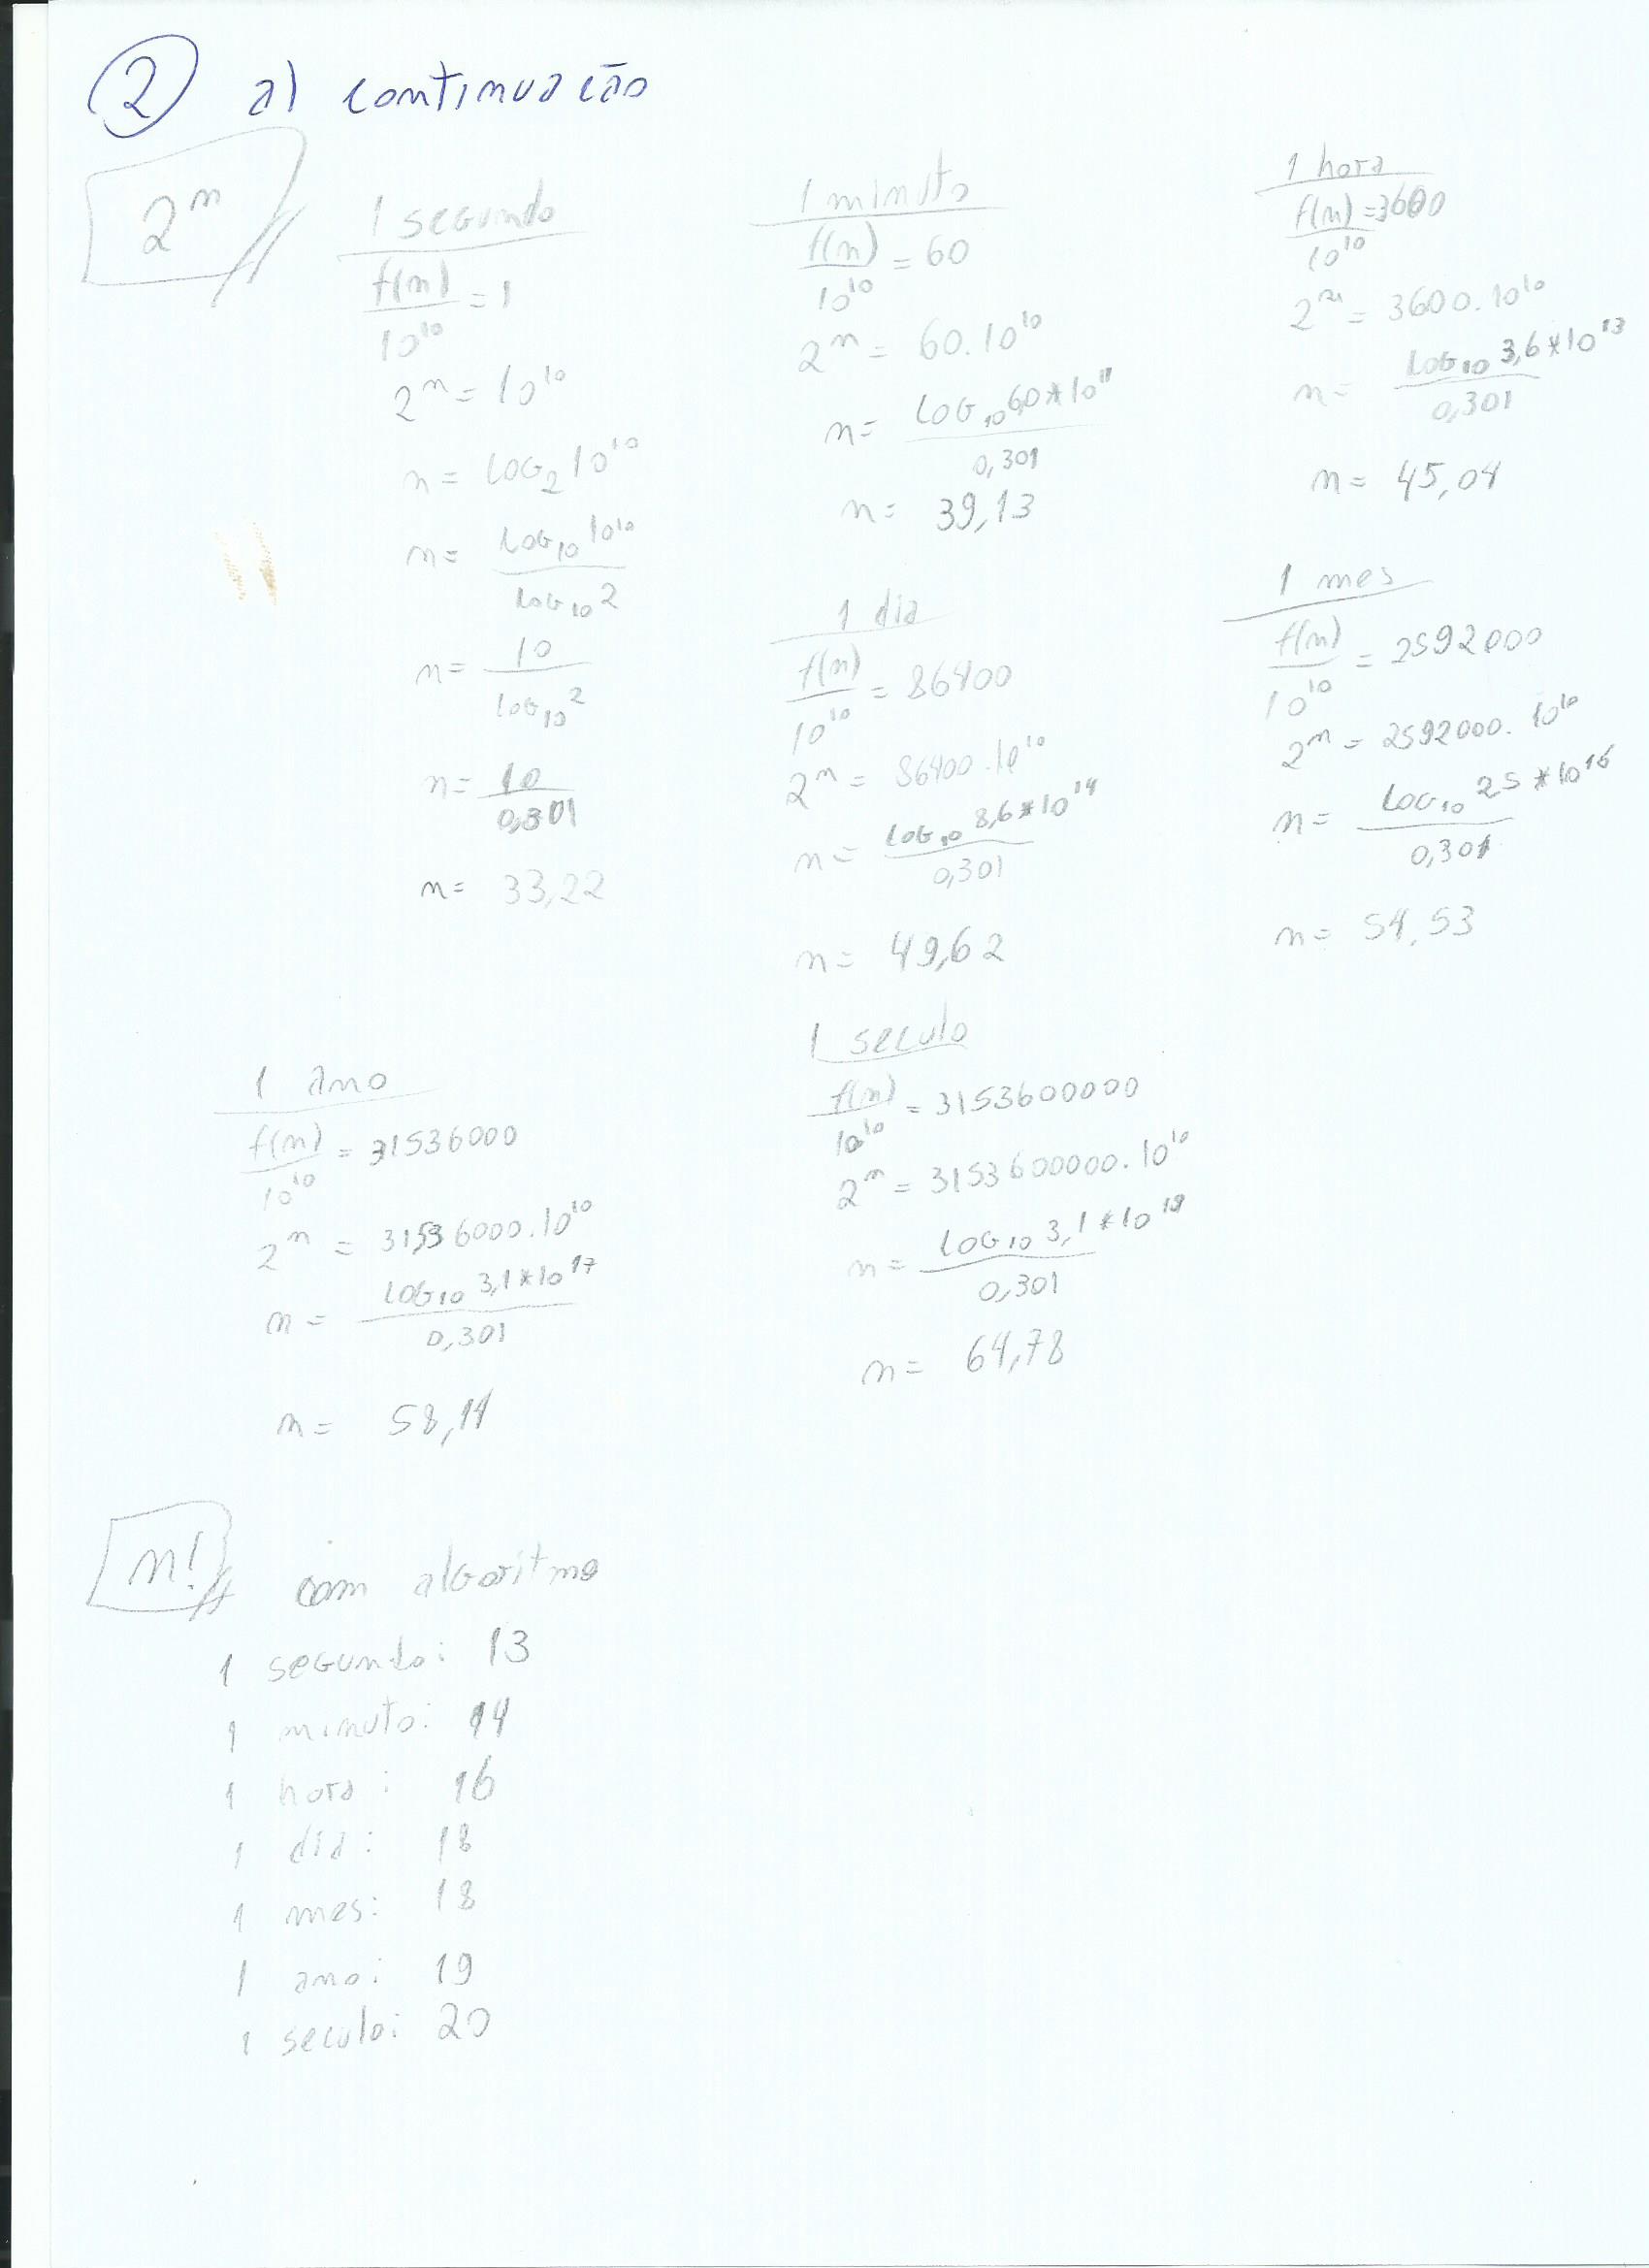 2 a) continuação
2^n
1 segundo
f(n)/10^10 = 1
2^n = 10^10
n = log_2 10^10
n = log_10 10^10 / log_10 2
n = 10 / log_10 2
n = 10 / 0,301
n = 33,22
1 minuto
f(n)/10^10 = 60
2^n = 60.10^10
n = log_10 6,0*10^11 / 0,301
n = 39,13
1 hora
f(n)/10^10 = 3600
2^n = 3600.10^10
n = log_10 3,6*10^13 / 0,301
n = 45,04
1 dia
f(n)/10^10 = 86400
2^n = 86400.10^10
n = log_10 8,6*10^14 / 0,301
n = 49,62
1 mes
f(n)/10^10 = 2592000
2^n = 2592000.10^10
n = log_10 2,5*10^16 / 0,301
n = 54,53
1 ano
f(n)/10^10 = 31536000
2^n = 31536000.10^10
n = log_10 3,1*10^17 / 0,301
n = 58,14
1 seculo
f(n)/10^10 = 3153600000
2^n = 3153600000.10^10
n = log_10 3,1*10^19 / 0,301
n = 64,78
n! com algoritmo
1 segundo: 13
1 minuto: 14
1 hora: 16
1 dia: 18
1 mes: 18
1 ano: 19
1 seculo: 20